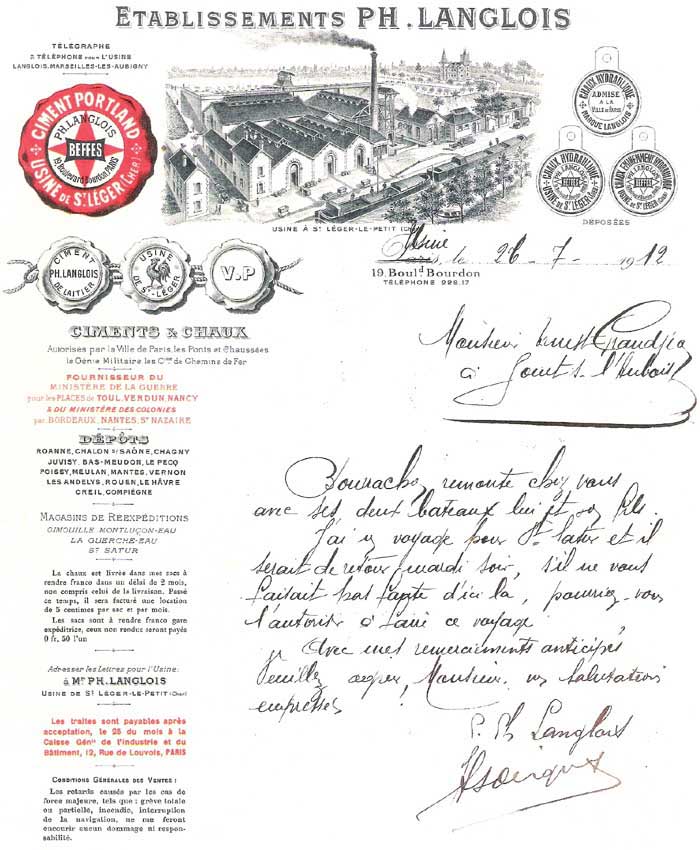 ETABLISSEMENTS PH. LANGLOIS
TÉLÉGRAPHE
& TÉLÉPHONE POUR L'USINE
LANGLOIS, MARSEILLES-LES-AUBIGNY
CIMENT PORTLAND
PH. LANGLOIS
BEFFES
19, Boulevard Bourdon, PARIS
USINE DE St LÉGER (CHER)
CHAUX HYDRAULIQUE
ADMISE
A LA
VILLE DE PARIS
MARQUE LANGLOIS
CHAUX HYDRAULIQUE
PH. LANGLOIS
USINE DE St LÉGER (CHER)
CHAUX ÉMINEMMENT HYDRAULIQUE
PH. LANGLOIS
USINE DE St LÉGER (CHER)
DÉPOSÉES
USINE À St LÉGER-LE-PETIT (CHER)
Usine
Paris, le 26 - 7 - 1912
19, Bould Bourdon
TÉLÉPHONE 926.17
CIMENT
PH. LANGLOIS
DE LAITIER
USINE
DE St LÉGER
V.P
CIMENTS & CHAUX
Autorisés par la Ville de Paris, les Ponts et Chaussées
le Génie Militaire, les Cies de Chemins de Fer
FOURNISSEUR DU
MINISTÈRE DE LA GUERRE
pour les PLACES de TOUL, VERDUN, NANCY
& DU MINISTÈRE DES COLONIES
par BORDEAUX, NANTES, St NAZAIRE
DÉPÔTS
ROANNE, CHALON S/SAÔNE, CHAGNY
JUVISY, BAS-MEUDON, LE PECQ
POISSY, MEULAN, MANTES, VERNON
LES ANDELYS, ROUEN, LE HÂVRE
CREIL, COMPIÈGNE
MAGASINS DE REEXPÉDITIONS
GIMOUILLE MONTLUÇON-EAU
LA GUERCHE-EAU
ST SATUR
La chaux est livrée dans mes sacs à
rendre franco dans un délai de 2 mois,
non compris celui de la livraison. Passé
ce temps, il sera facturé une location
de 5 centimes par sac et par mois.
Les sacs sont à rendre franco gare
expéditrice, ceux non rendus seront payés
0 fr. 50 l'un
Adresser les Lettres pour l'Usine:
à Mr PH. LANGLOIS
USINE DE St LÉGER-LE-PETIT (Cher)
Les traites sont payables après
acceptation, le 25 du mois à la
Caisse Génle de l'Industrie et du
Bâtiment, 12, Rue de Louvois, PARIS
CONDITIONS GÉNÉRALES DES VENTES :
Les retards causés par les cas de
force majeure, tels que : grève totale
ou partielle, incendie, interruption
de la navigation, ne me feront
encourir aucun dommage ni respon-
sabilité.
Monsieur Ernest
à Jouet s. l'Aubois
Bourachot remonte chez vous
avec ses deux bateaux lui et son fils.
J'ai un voyage pour St Satur et il
serait de retour mardi soir, s'il ne vous
faisait pas faute d'ici là, pourriez-vous
l'autoriser à faire ce voyage.
Avec mes remerciements anticipés
Veuillez agréer, Monsieur, mes salutations
empressées.
P. Ph Langlois